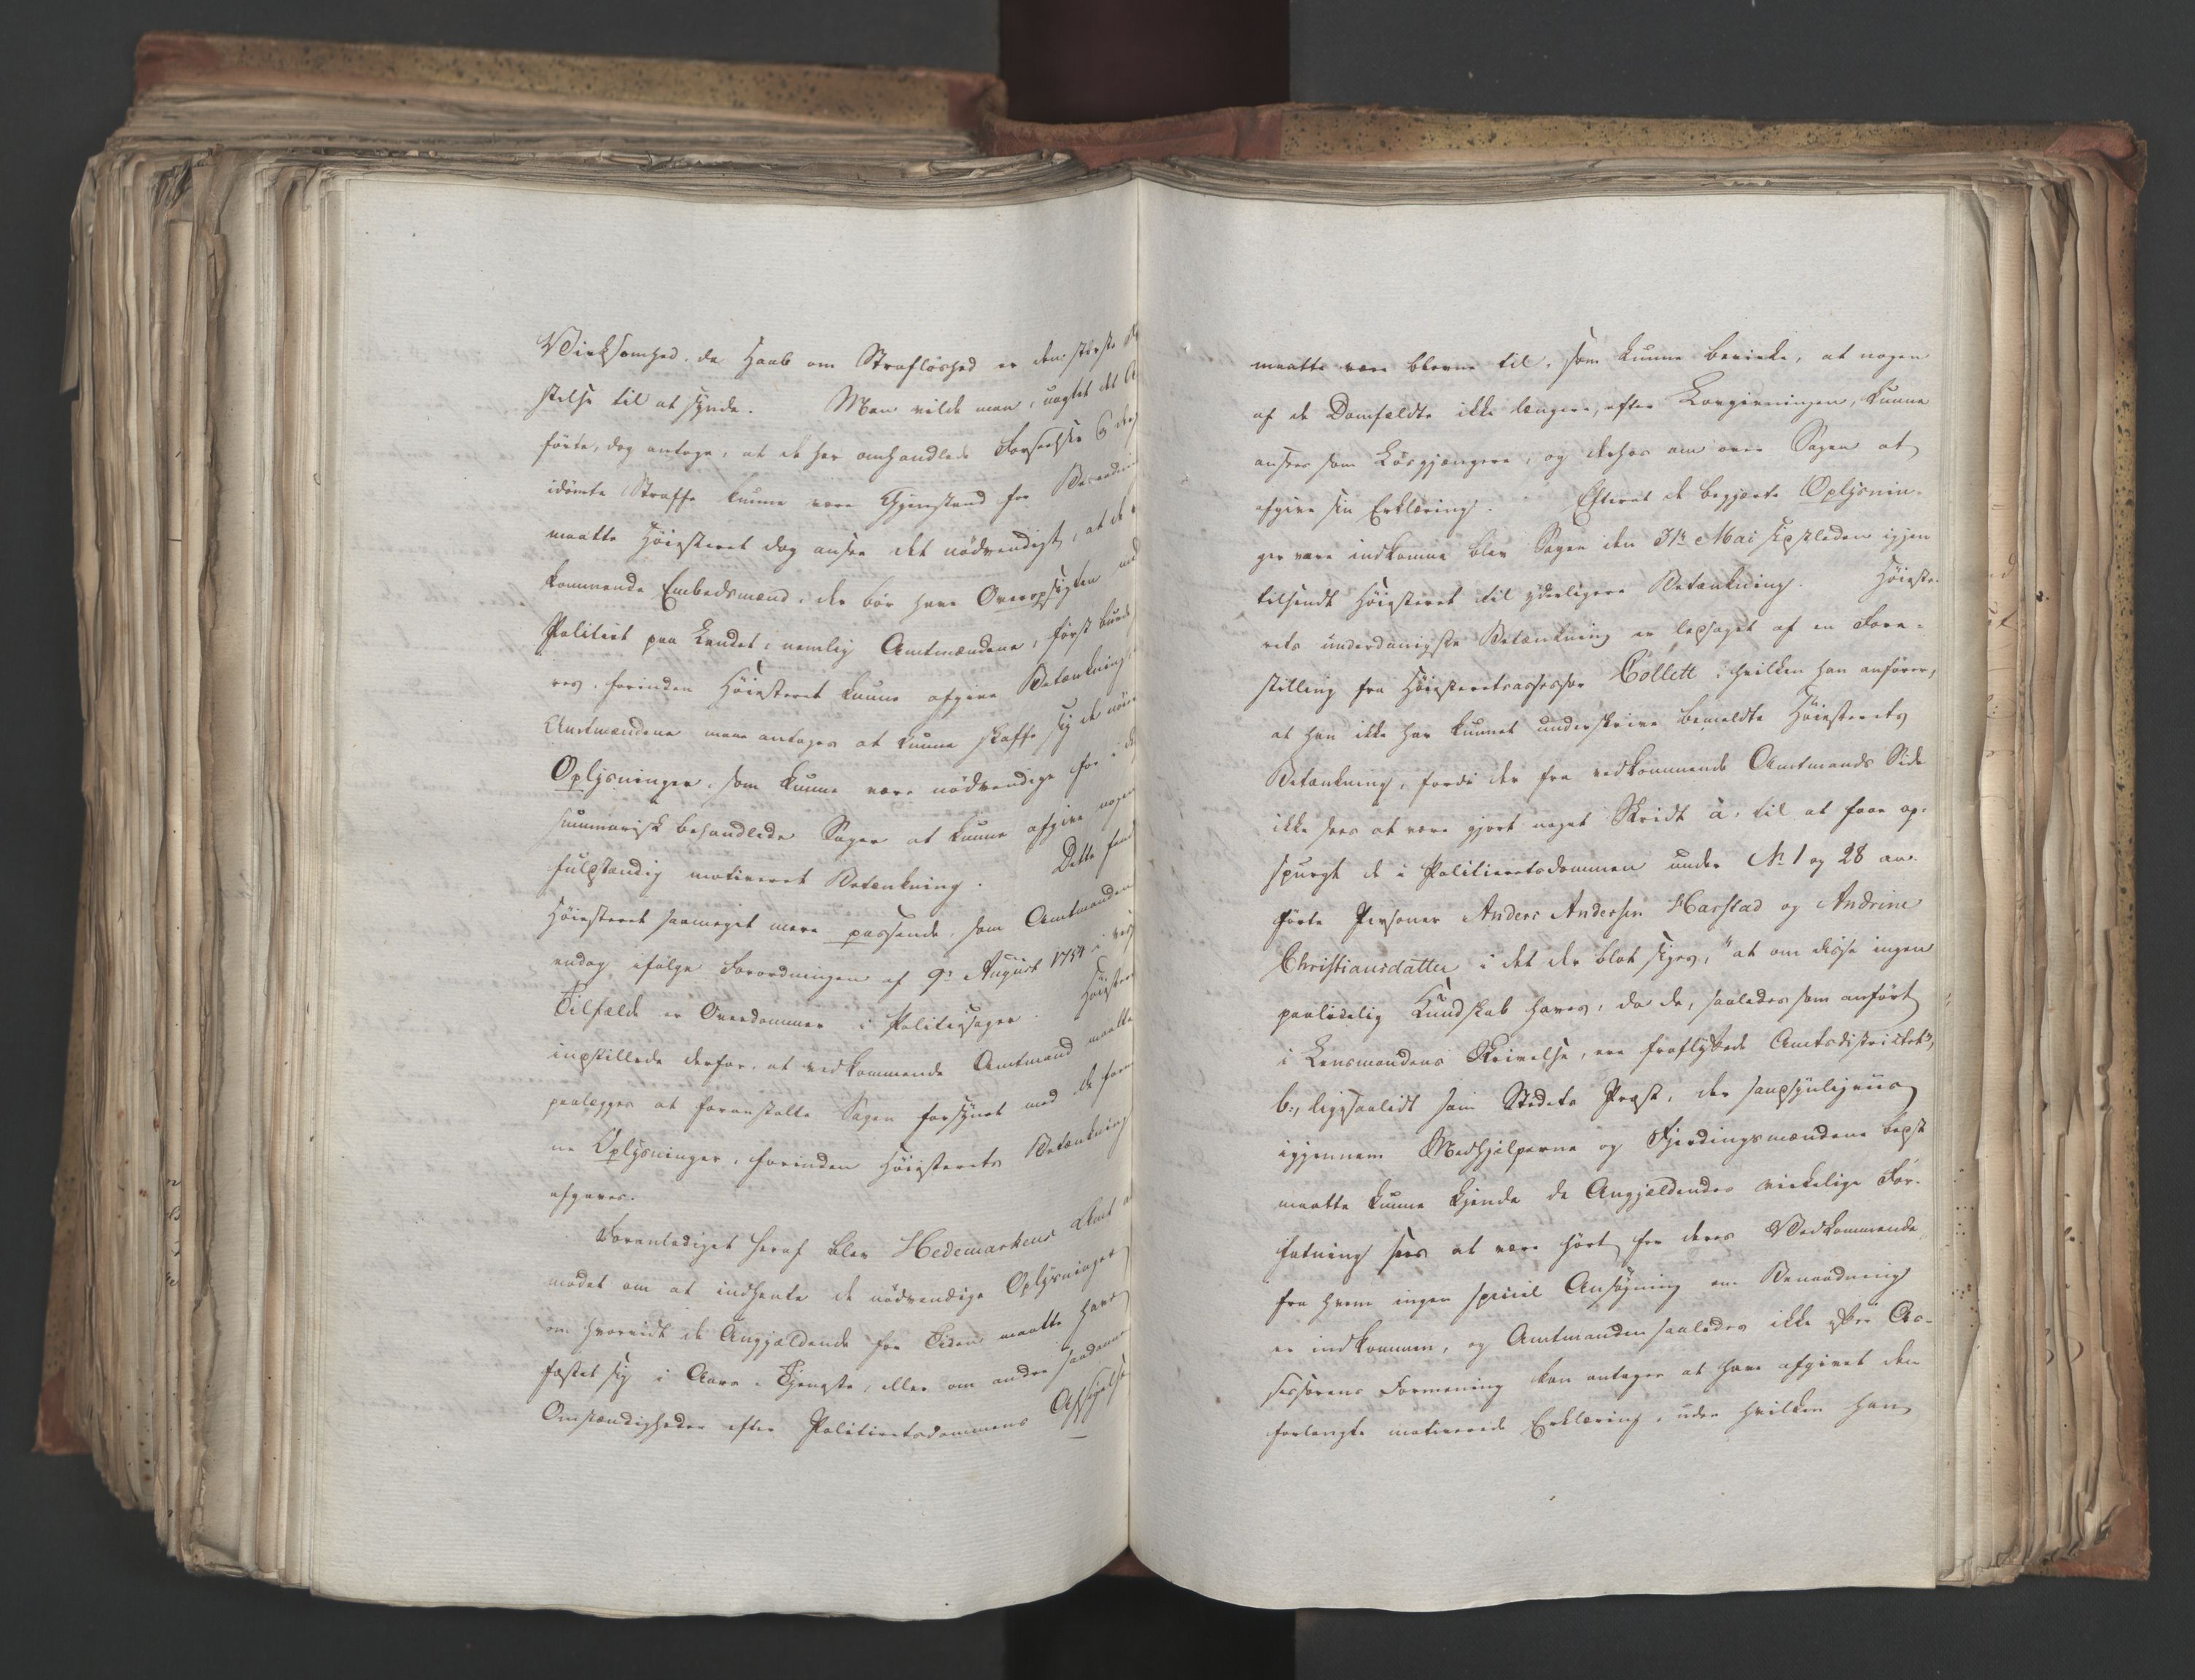 Virksomhed, da Haab om Strafløshed er den største
stelse til at synde. Men vilde man, uagtet det
førte, dog antage, at de her omhandlede Forseelser &
idømte Straffe kunne være Gjenstand for
maatte Høiesteret dog ansee det nødvendigt, at de
kommende Embedsmænd, der bør have Overopsigten
Politiet paa Landet, nemlig Amtmændene, først
res, forinden Høiesteret kunne afgive Betænkning,
Amtmændene maae antages at kunne skaffe sig de
Oplysninger, som kunne være nødvendige for i
summarisk behandlede Sager at kunne afgive nogen
fulstændig motiveret Betænkning. Dette fandt
Høiesteret saameget mere passende, som Amtmanden
endog ifølge Forordningen af 9de August 1754 i
Tilfælde er Overdommer i Politiesager. Høiesteret
instillede derfor, at vedkommende Amtmand maatte
paalægges at foranstalte Sagen forsynet med de
ne Oplysninger, forinden Høiesterets Betænkning
afgaves.
Foranlediget heraf blev Hedemarkens Amt
modet om at indhente de nødvendige Oplysninger
om hvorvidt de Angjældende for Tiden maatte have
fæstet sig i Aars-Tjeneste, eller om andre saadanne
Omstændigheder efter Politieretsdommens Afsigelse
maatte være blevne til, som kunne bevirke, at nogen
af de Domfældte ikke længere, efter Lovgivningen, kunne
ansees som Løsgjængere, og derhos om over Sagen at
afgive sin Erklæring. Efterat de begjærte Oplysnin-
ger vare indkomne blev Sagen den 31te Mai sidstleden igjen
tilsendt Høiesteret til yderligere Betænkning. Høieste-
rets underdanigste Betænkning er ledsaget af en Fore-
stilling fra Høiesteretsassessor Collett, i hvilken han anfører,
at han ikke har kunnet underskrive bemeldte Høiesterets
Betænkning, fordi der fra vedkommende Amtmands Side
ikke sees at være gjort noget Skridt a, til at faae op-
spurgt de i Politieretsdommen under No 1 og 28 an-
førte Personer Anders Andersen Harstad og Andrine
Christiansdatter i det der blot siges, "at om disse ingen
paalidelig Kundskab haves, da de, saaledes som anført
i Lensmandens Skrivelse, ere fraflyttede Amtsdistriktet",
b, ligesaalidt som Stedets Præst, der sandsynligviis
igjennem Medhjelperne og Fjerdingsmændene bedst
maatte kunne kjende de Angjældendes virkelige For-
fatning sees at være hørt for deres Vedkommende
fra hvem ingen speciel Ansøgning om Benaadning
er indkommen, og Amtmanden saaledes ikke efter As-
sessorens Formening kan antages at have afgivet den
forlangte motiverede Erklæring, uden hvilken han